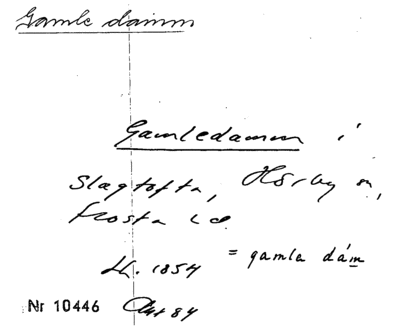 Gamle damm
Gamledamm i
Slagtofta, Hörby sn,
Frosta hd
Lk. 1854 = gamla dám
Nr 10446 Akt 84